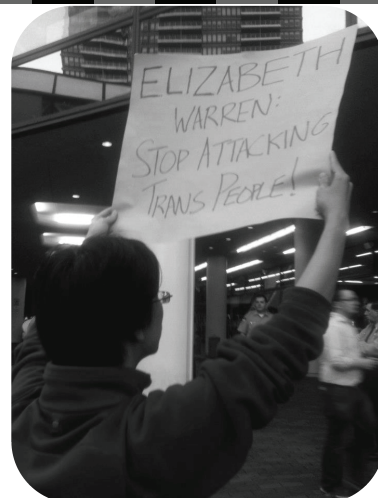 ELIZABETH
WARREN:
STOP ATTACKING
TRANS PEOPLE!